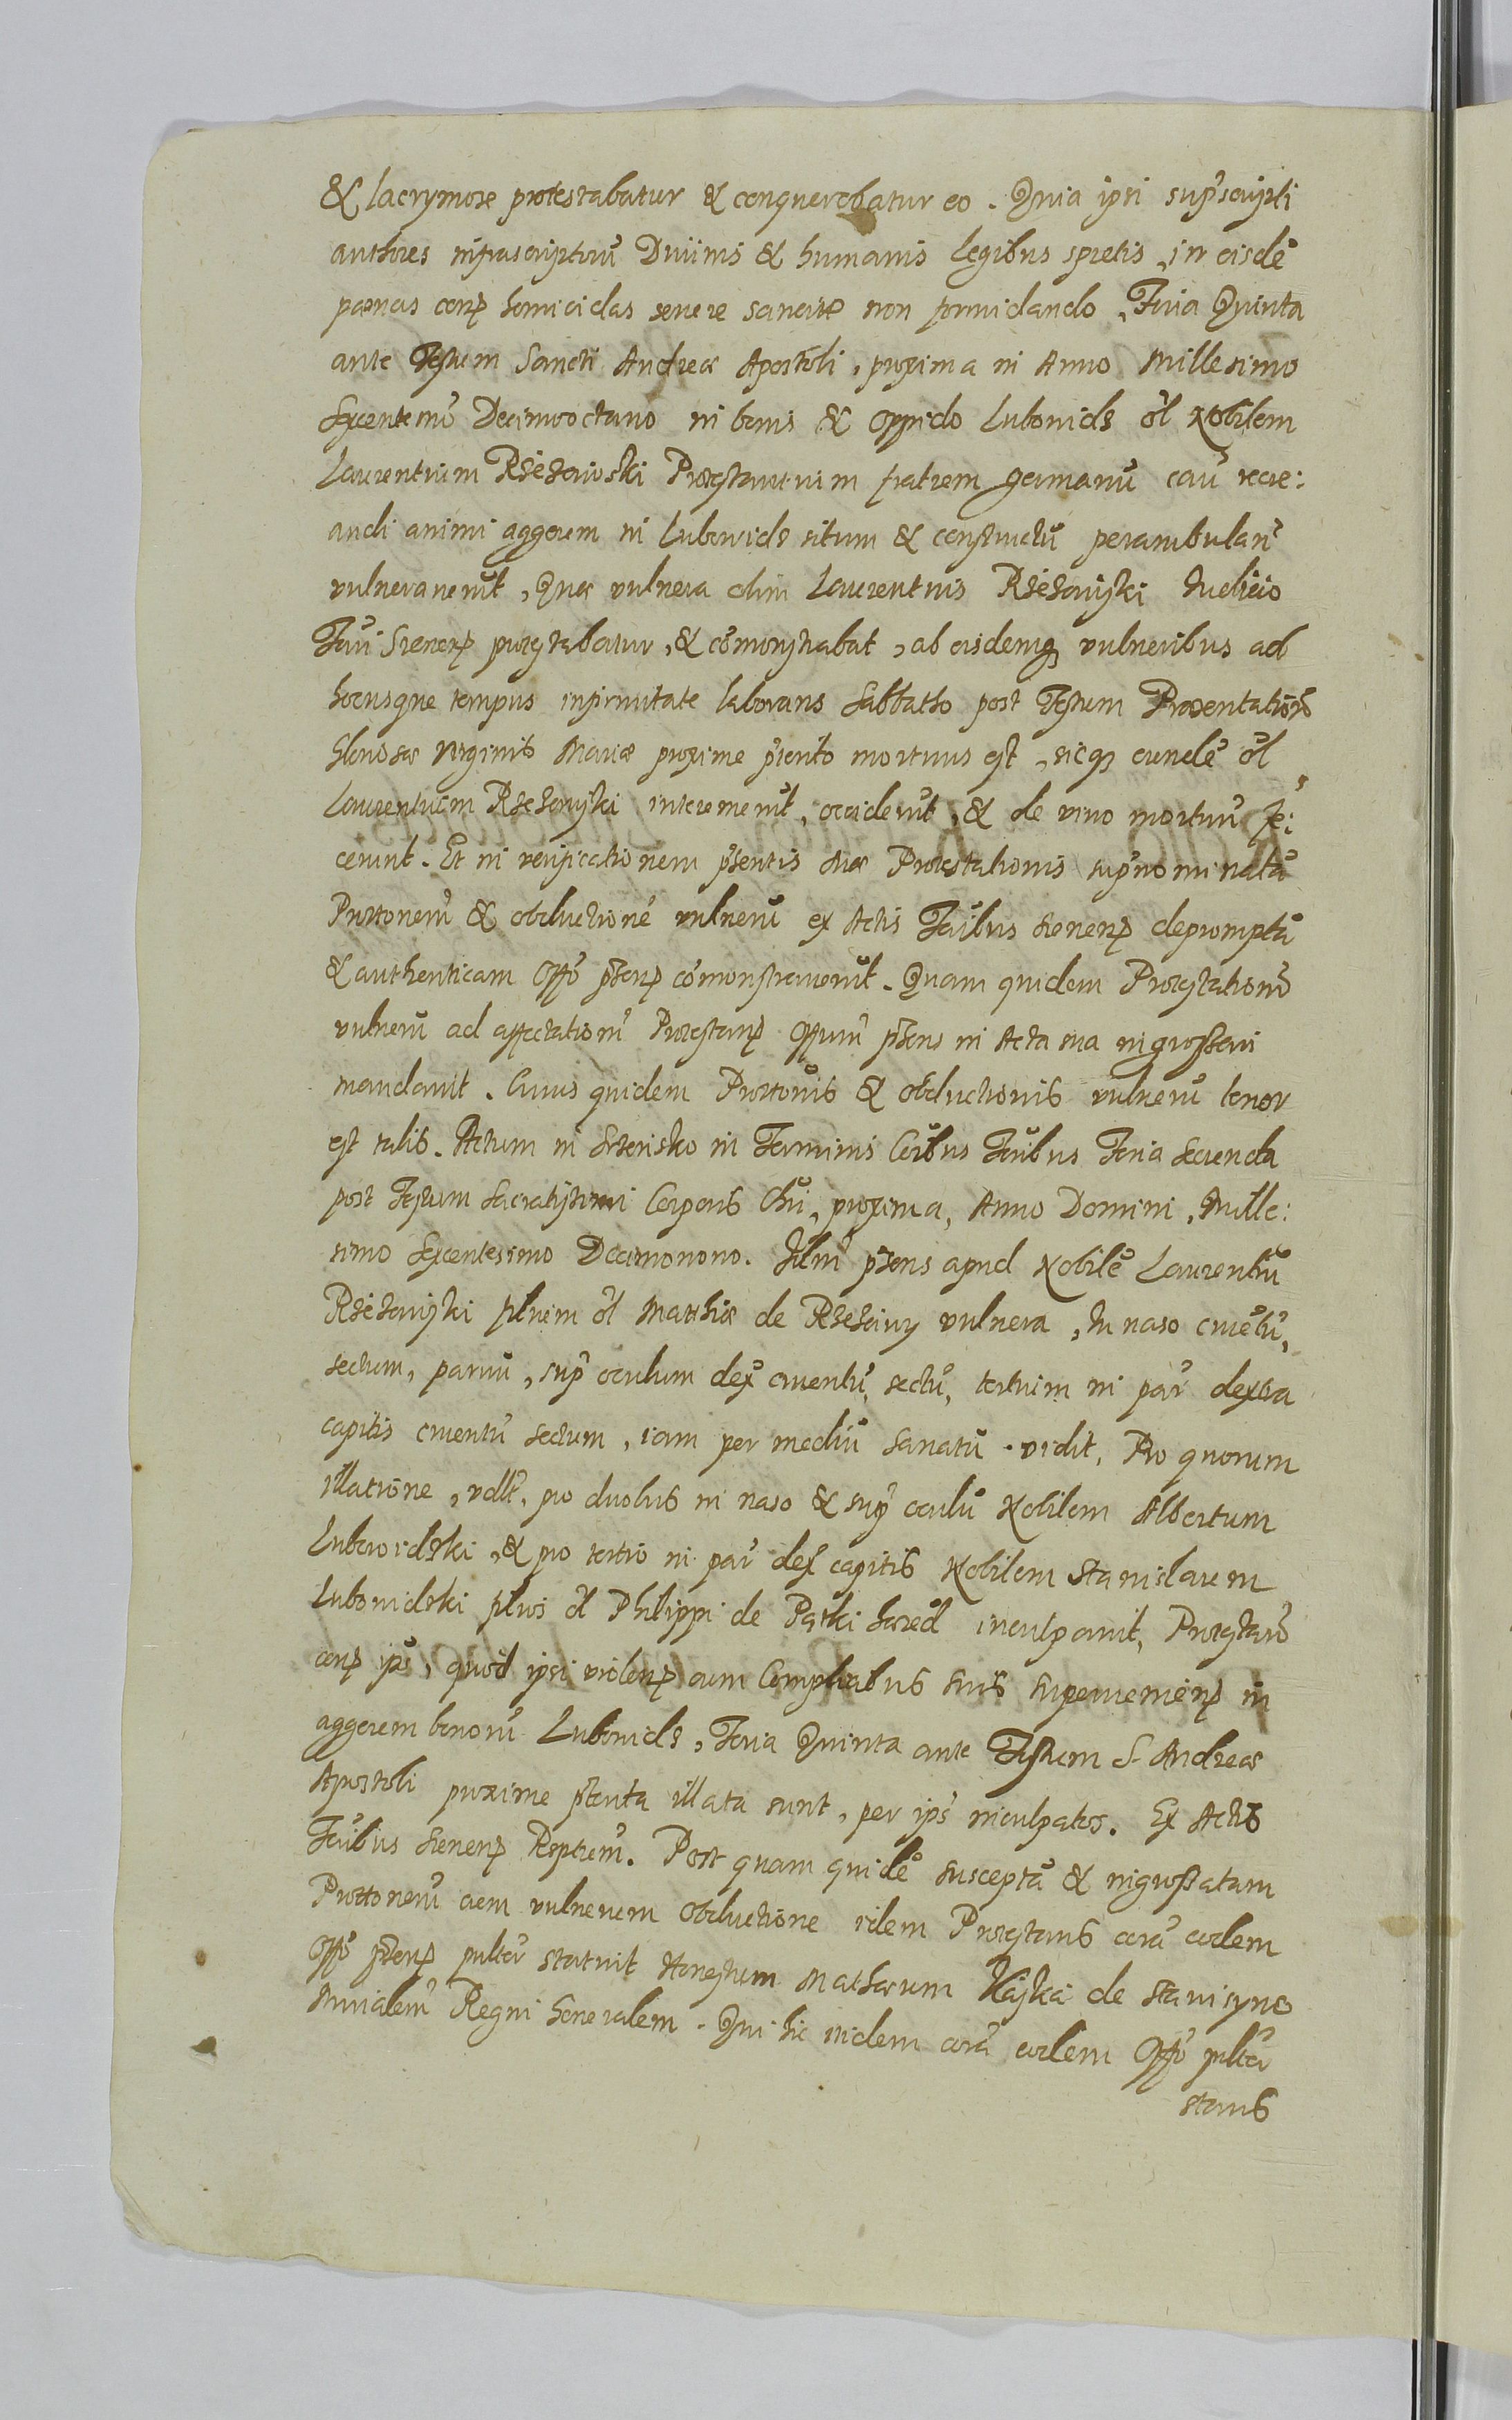 & lacrymose protestabatur & conquerebatur eo. Quia ipsi supscripti
authores infrascriptorũ Diuinis & humanis legibus spretis, in eisdẽ
pœnas conᵱ homicidas seuere sancitæ non formidando, Feria Quinta
ante Festum Sancti Andreæ Apostoli, proxima in Anno Millesimo
Sexcentesimo Decimooctauo in bonis & oppido Lubouidz ol̃ Nobilem
Laurentium Rzeszowski Protestantium fratrem germanũ cau͂ recre:
andi animi aggerem in Lubowidz situm & constructũ perambulan͂
vulnerauerũt, Quæ vulnera olim Laurentius Rzeszowski Judicio
Trĩ Srenenᵱ protestabatur, & cõmonstrabat, ab eisdemqꝫ vulneribus ad
hocusque tempus infirmitate laborans Sabbatho post Festum Præsentationẽ
Gloriosæ Virginis Mariæ proxime p̃terito mortuus est, sicqꝫ eundẽ ol̃
Laurentium Rzeszowski interemerũt, occiderũt, & de viuo mortuũ fe:
cerunt. Et in verificationem p̃sentis suæ Protestationis supnominatã
Prottonem̃ & obductionẽ vulnerũ ex Actis Tr̃ibus Srenenᵱ depromptã
& authenticam Offõ p̃senᵱ cõmonstrauerũt. Quam quidem Protestationẽ
vulnerũ ad affectationẽ Protestanᵱ Offium̃ p̃sens in Acta sua ingrossari
mandauit. Cuius quidem Prottonis & obductionis vulnerũ tenor
est talis. Actum in Srensko in Terminis Cer̃ibus Tr̃ibus Feria Secunda
post Festum Sacratissimi Corporis Chr̃i, proxima, Anno Domini, Mille:
simo Sexcentesimo Decimonono. Judm̃ p̃sens apud Nobilẽ Laurentiũ
Rzeszowski filium ol̃ Mathiæ de Rzeszowy vulnera, In naso cruẽtũ,
sectum, paruũ, sup̃ oculum dex̃ cruentũ, sectũ, tertium in par̃ dextra
capitis cruentũ sectum, iam per mediũ sanatũ vidit, Pro quorum
illatione, vdl̃t, pro duobus in naso & sup̃ oculũ Nobilem Albertum
Lubowidzki, & pro tertio in par̃ dex̃ capitis Nobilem Stanislaum
Lubouidzki filios ol̃ Philippi de Paski hæred̃ inculpauit, Protestan͂
conᵱ ip̃s, quod ipsi violenᵱ cum Complicibus suis superuenienᵱ in
aggerem bonorũ Lubouidz, Feria Quinta ante Festum S. Andreæ
Apostoli proxime p̃terita illata sunt, per ip̃s inculpatos. Ex Actis
Tr̃ibus Srenenᵱ Rᵱtum̃. Post quam quidẽ susceptã & ingrossatam
Prottonem̃ cum vulnerum obductione idem Protestans corã eodem
Offõ p̃senᵱ pulter̃ statuit Honestum Mathæum Kaska de Staniszyno
Minialem̃ Regni Generalem. Qui hic itidem corã eodem Offõ pulter̃
stans